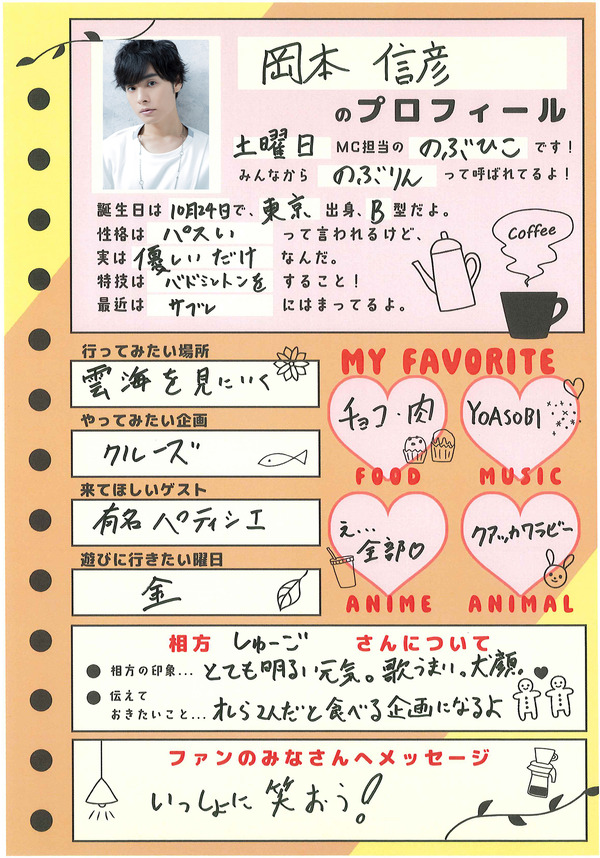 岡本 信彦
のプロフィール
土曜日 MC担当の のぶひこ です！
みんなから のぶりん って呼ばれてるよ！
誕生日は 10月24日で、東京 出身、B 型だよ。
性格は パスい って言われるけど、
実は 優しいだけ なんだ。
特技は バドミントンを すること！
最近は サブレ にはまってるよ。
Coffee
行ってみたい場所
雲海を見にいく
やってみたい企画
クルーズ
来てほしいゲスト
有名パティシエ
遊びに行きたい曜日
金
MY FAVORITE
チョコ・肉
FOOD
YOASOBI
MUSIC
え…全部♡
ANIME
クアッカワラビー
ANIMAL
相方 しゅーご さんについて
相方の印象… とても明るい元気。歌うまい。犬顔。
伝えて
おきたいこと… オレら2人だと食べる企画になるよ
ファンのみなさんへメッセージ
いっしょに笑おう！